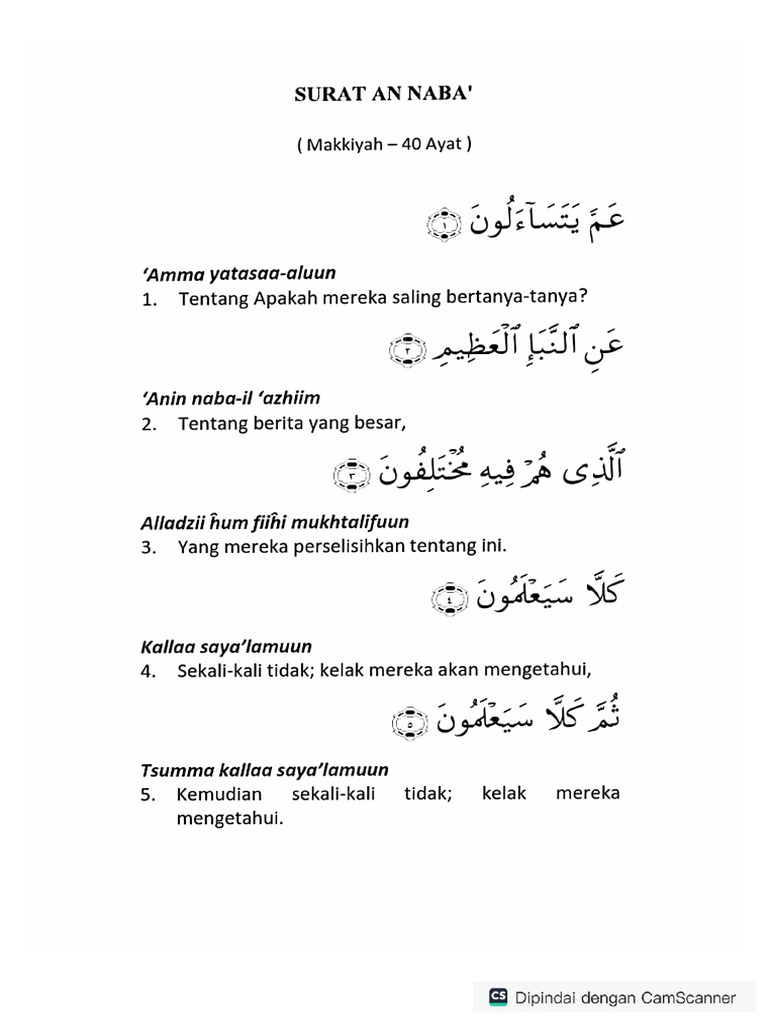 SURAT AN NABA'
( Makkiyah – 40 Ayat )
عَمَّ يَتَسَآءَلُونَ ١
‘Amma yatasaa-aluun
1. Tentang Apakah mereka saling bertanya-tanya?
عَنِ ٱلنَّبَإِ ٱلْعَظِيمِ ٢
‘Anin naba-il ‘azhiim
2. Tentang berita yang besar,
ٱلَّذِى هُمْ فِيهِ مُخْتَلِفُونَ ٣
Alladzii ĥum fiiĥi mukhtalifuun
3. Yang mereka perselisihkan tentang ini.
كَلَّا سَيَعْلَمُونَ ٤
Kallaa saya’lamuun
4. Sekali-kali tidak; kelak mereka akan mengetahui,
ثُمَّ كَلَّا سَيَعْلَمُونَ ٥
Tsumma kallaa saya’lamuun
5. Kemudian sekali-kali tidak; kelak mereka
mengetahui.
CS Dipindai dengan CamScanner